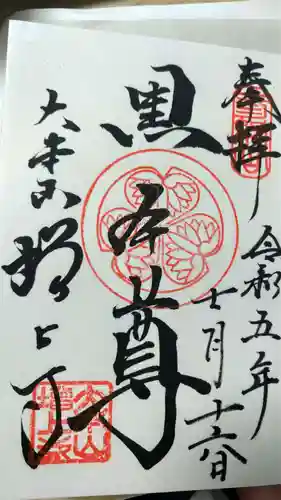 奉拝
令和五年
十一月十六日
黒本尊
大本山増上寺
大本山
増上寺